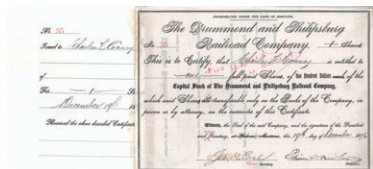 No 35
Issued to Charles L.
of
For 1 Shares
December 19th
Received the above described Certificate
INCORPORATED UNDER THE LAWS OF MONTANA
The Drummond and Philipsburg
Railroad Company.
Shares
This is to Certify, that Charles is entitled to
one full paid Shares, of One Hundred Dollars each, of the
Capital Stock of The Drummond and Philipsburg Railroad Company,
which said Shares are transferable only on the Books of the Company, in
person or by attorney, on the surrender of this Certificate.
Witness, the Seal of the said Company, and the signatures of the President
and Secretary, at Helena, Montana, this 19th day of December
Secretary. President.